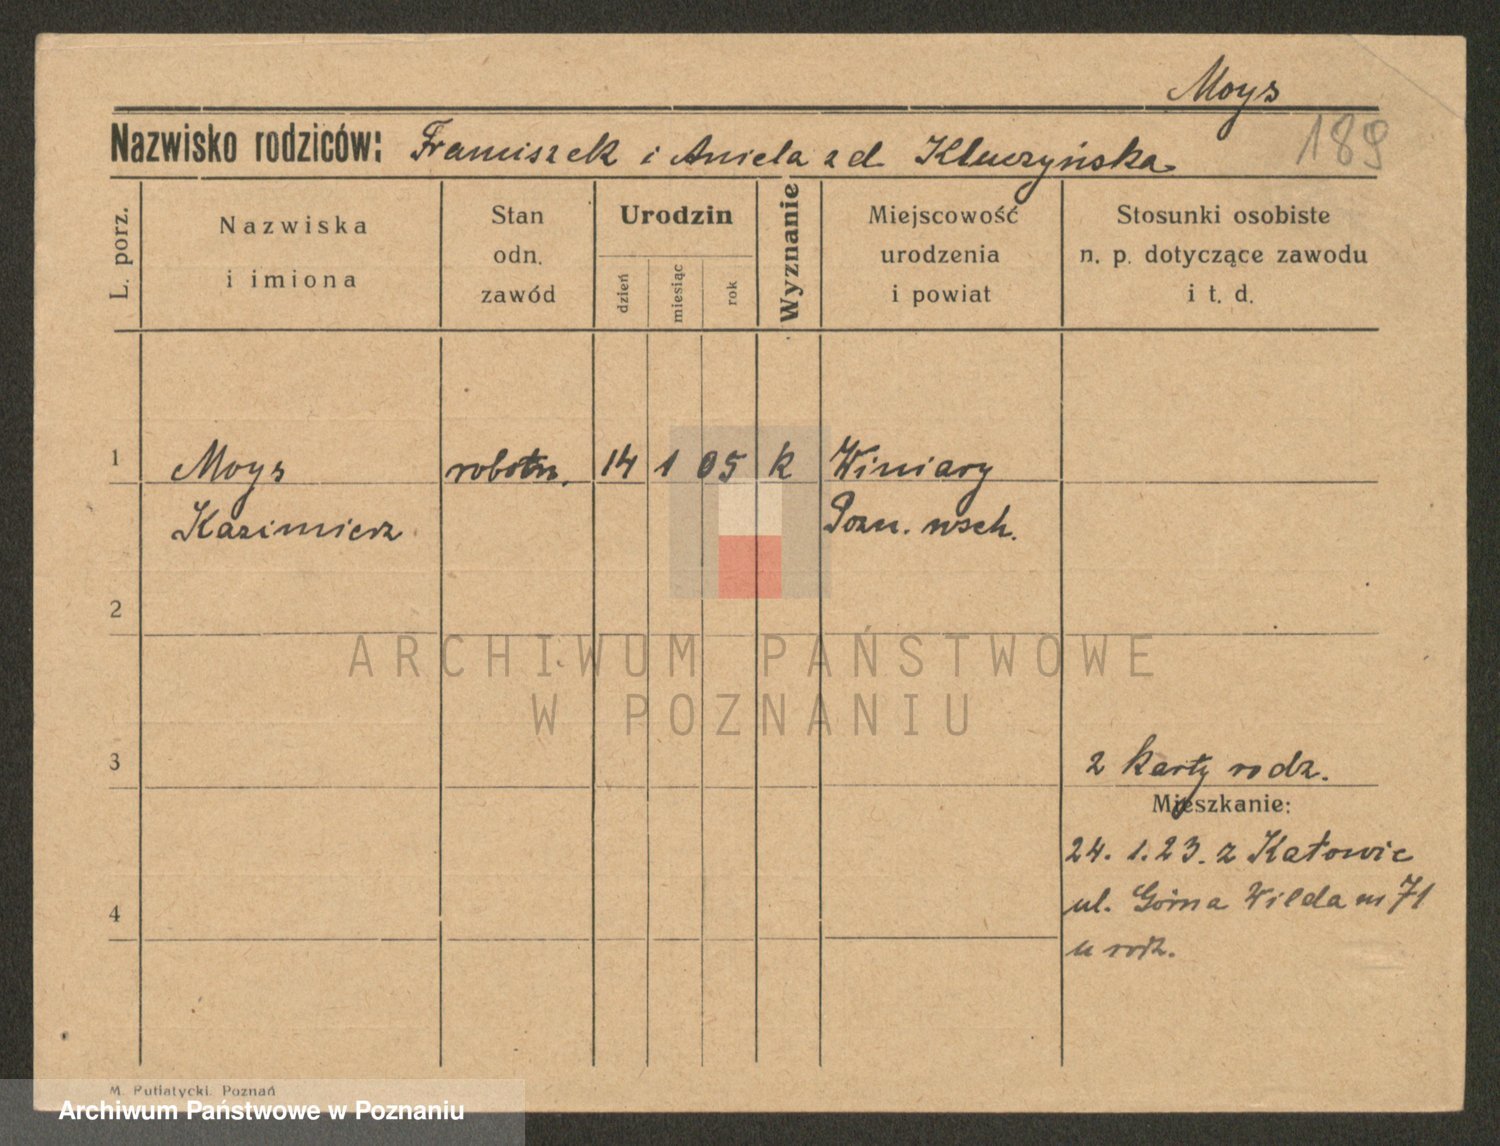 Moys
Nazwisko rodziców: Franciszek i Aniela z d. Kłuczyńska
189
L. porz.
Nazwiska
i imiona
Stan
odn.
zawód
Urodzin
dzień
miesiąc
rok
Wyznanie
Miejscowość
urodzenia
i powiat
Stosunki osobiste
n. p. dotyczące zawodu
i t. d.
1 Moys robotn. 14 1 05 k Winiary
Kazimierz Pozn. wsch.
2
ARCHIWUM PAŃSTWOWE
W POZNANIU
3 2 karty rodz.
Mieszkanie:
24. 1. 23. z Katowic
4 ul. Górna Wilda m 71
u rodz.
M. Putiatycki. Poznań
Archiwum Państwowe w Poznaniu